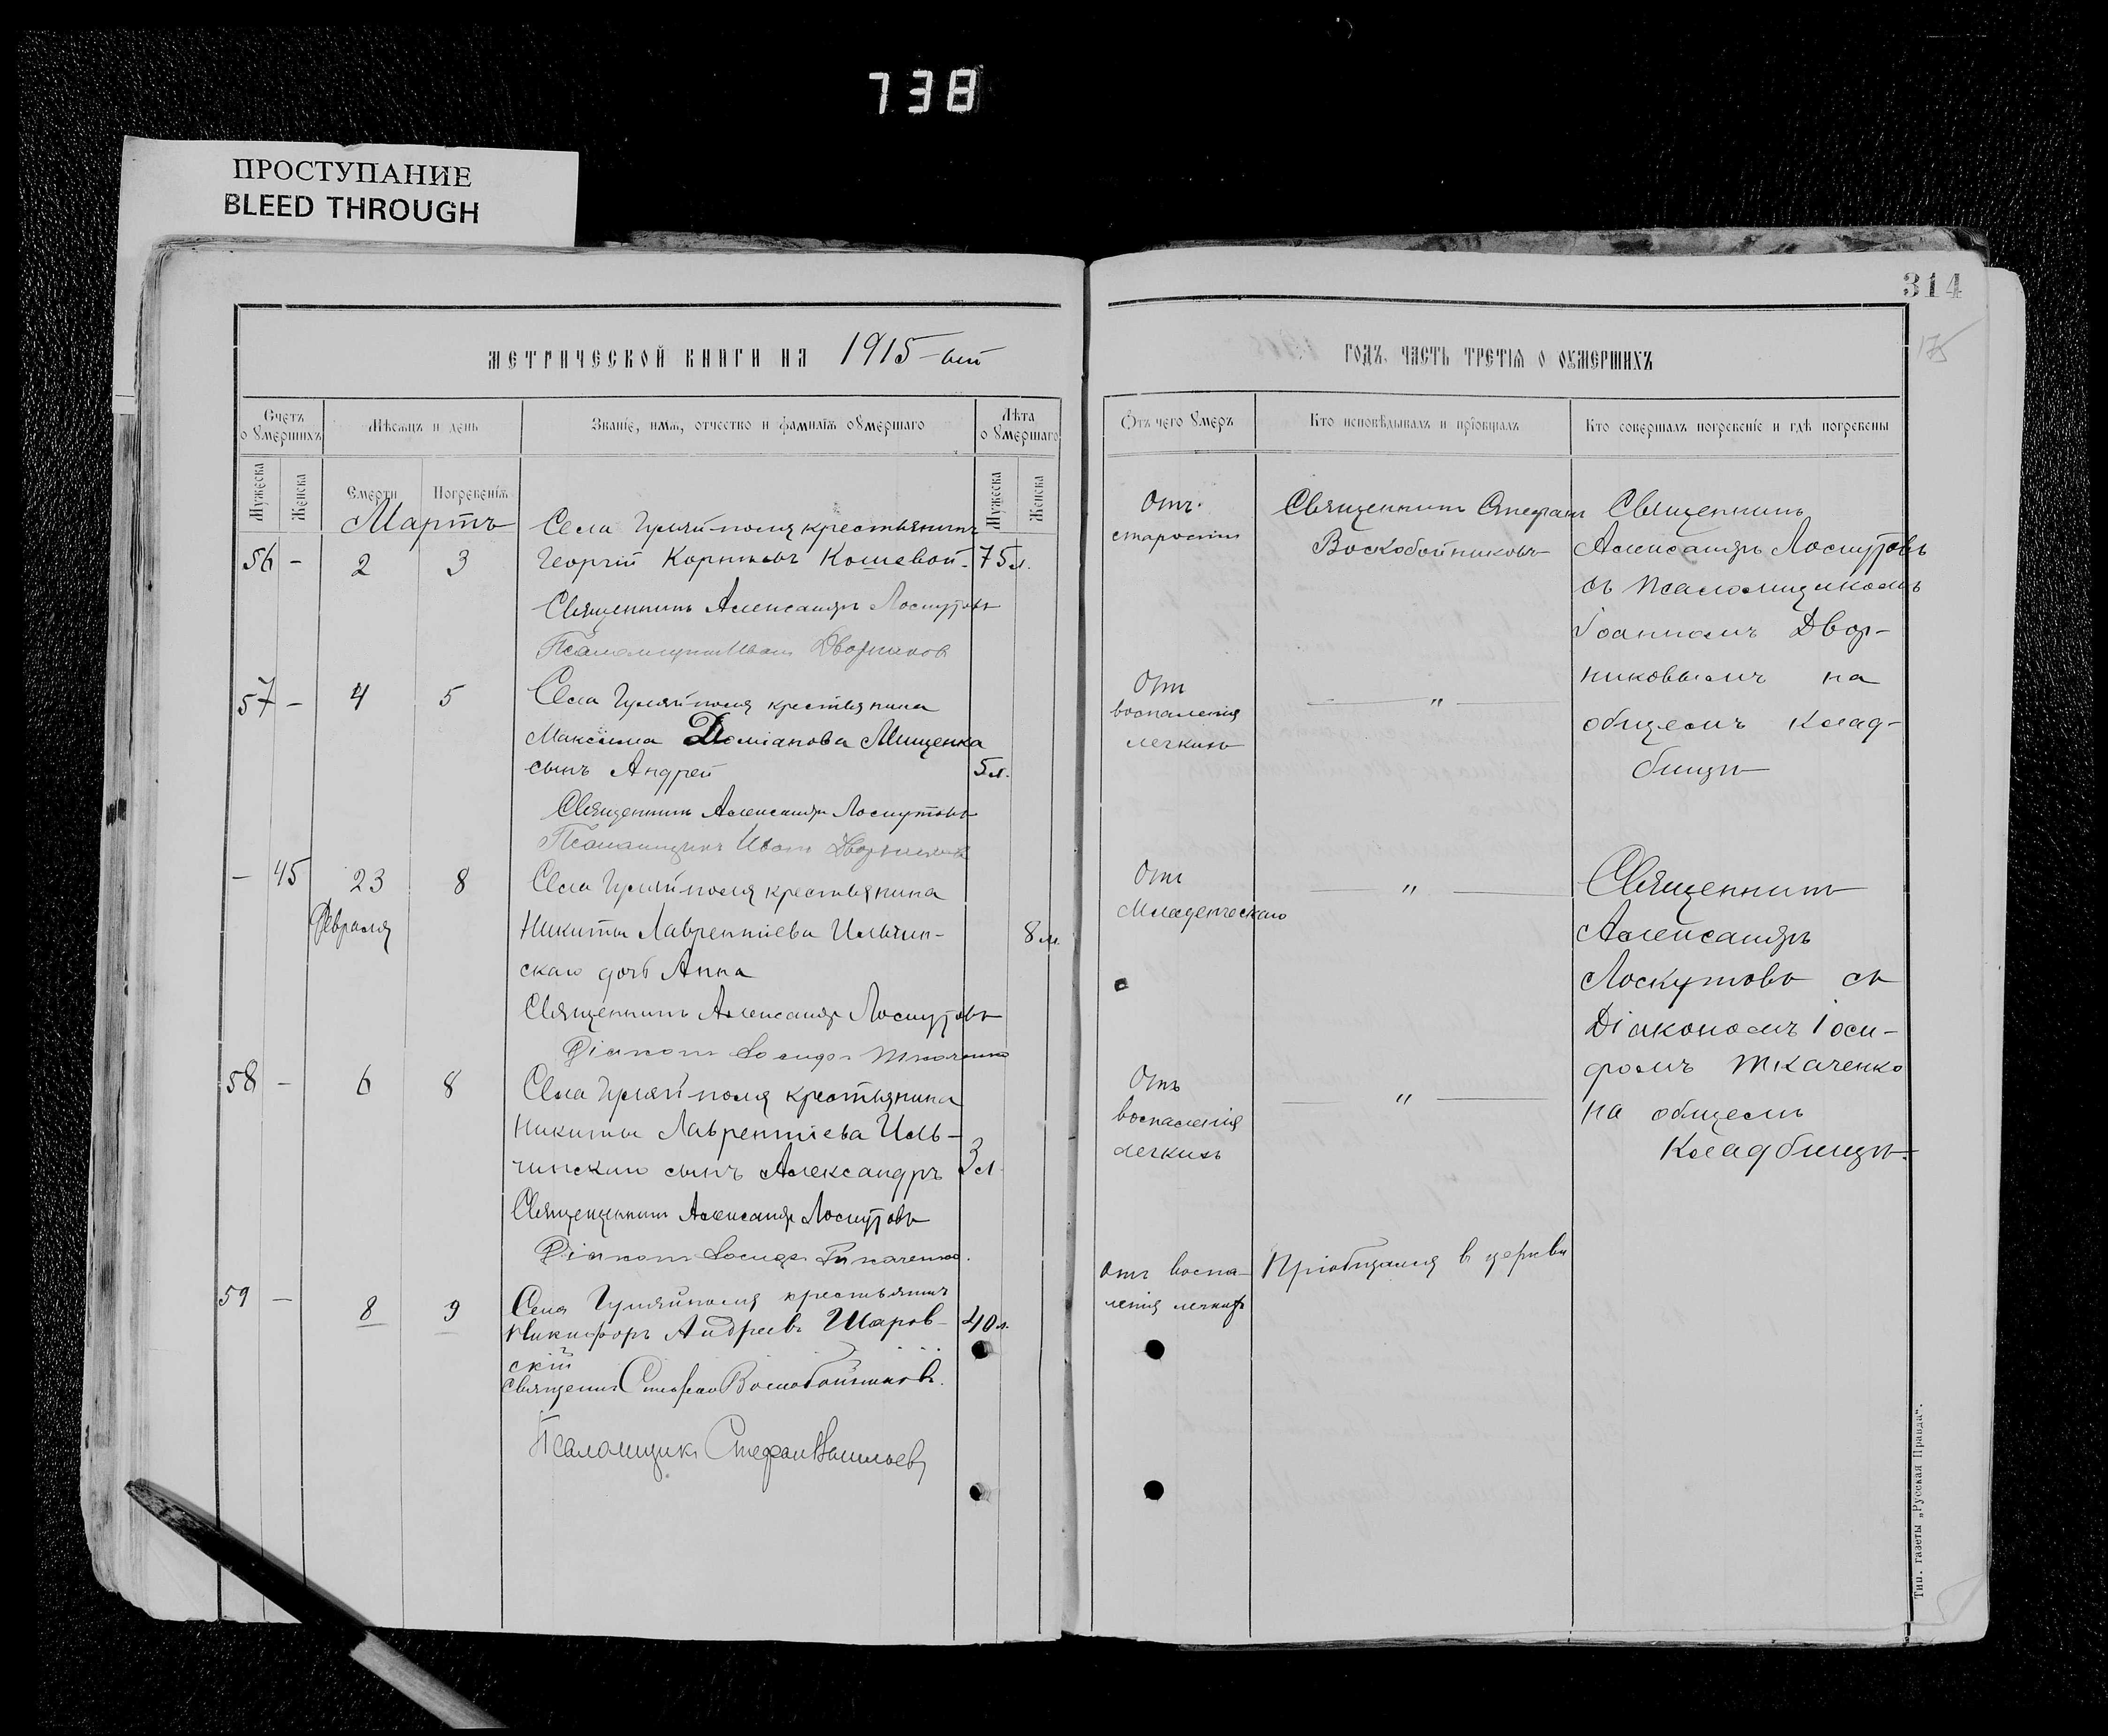 738
ПРОСТУПАНИЕ
BLEED THROUGH
314
175
МЕТРИЧЕСКОЙ КНИГИ НА 1915-ый
ГОДЪ. ЧАСТЬ ТРЕТІЯ О ОУМЕРШИХЪ
Счетъ
о Умершихъ
Мѣсяцъ и день
Званіе, имя, отчество и фамилія оУмершаго
Лѣта
о Умершаго
Мужеска
Женска
Смерти
Погребенія
Мужеска
Женска
Отъ чего Умеръ
Кто исповѣдывалъ и пріобщалъ
Кто совершалъ погребеніе и гдѣ погребены
Мартъ
Села Гуляй-поля крестьянинъ
56 - 2 3 Георгій Корніевъ Кошевой - 75 л.
Священникъ Александръ Лоскутовъ
Псаломщикъ Иванъ Дворников
57 - 4 5 Села Гуляй-поля крестьянина
Максима Даміанова Мищенка
сынъ Андрей 5 л.
Священникъ Александръ Лоскутовъ
Псаломщикъ Иванъ Дворников
- 45 23 8 Села Гуляй поля крестьянина
Февраля Никиты Лаврентіева Ильчин- 8 м.
скаго дочь Анна
Священникъ Александръ Лоскутовъ
Діаконъ Іосифъ Ткаченко
58 - 6 8 Села Гуляй поля крестьянина
Никиты Лаврентіева Иль-
чинскаго сынъ Александръ 3 л.
Священникъ Александръ Лоскутовъ
Діаконъ Іосифъ Ткаченко.
59 - 8 9 Села Гуляйполя крестьянинъ
Никифоръ Андреевъ Шаров- 40 л.
скій
Священник Стефан Воскобойников.
Псаломщикъ Стефан Васильев
Отъ
старости
Священникъ Стефанъ
Воскобойниковъ
Священникъ
Александръ Лоскутовъ
съ псаломщикомъ
Іоанномъ Двор-
никовымъ на
общемъ клад-
бищѣ
Отъ
воспаленія
легкихъ
"
Отъ
Младенческаго
"
Священникъ
Александръ
Лоскутовъ съ
Діакономъ Іоси-
фомъ Ткаченко
на общемъ
Кладбищѣ.
Отъ
воспаленія
легкихъ
"
Отъ воспа-
ленія легкихъ
Пріобщался в церкви
Тип. газеты „Русская Правда“.